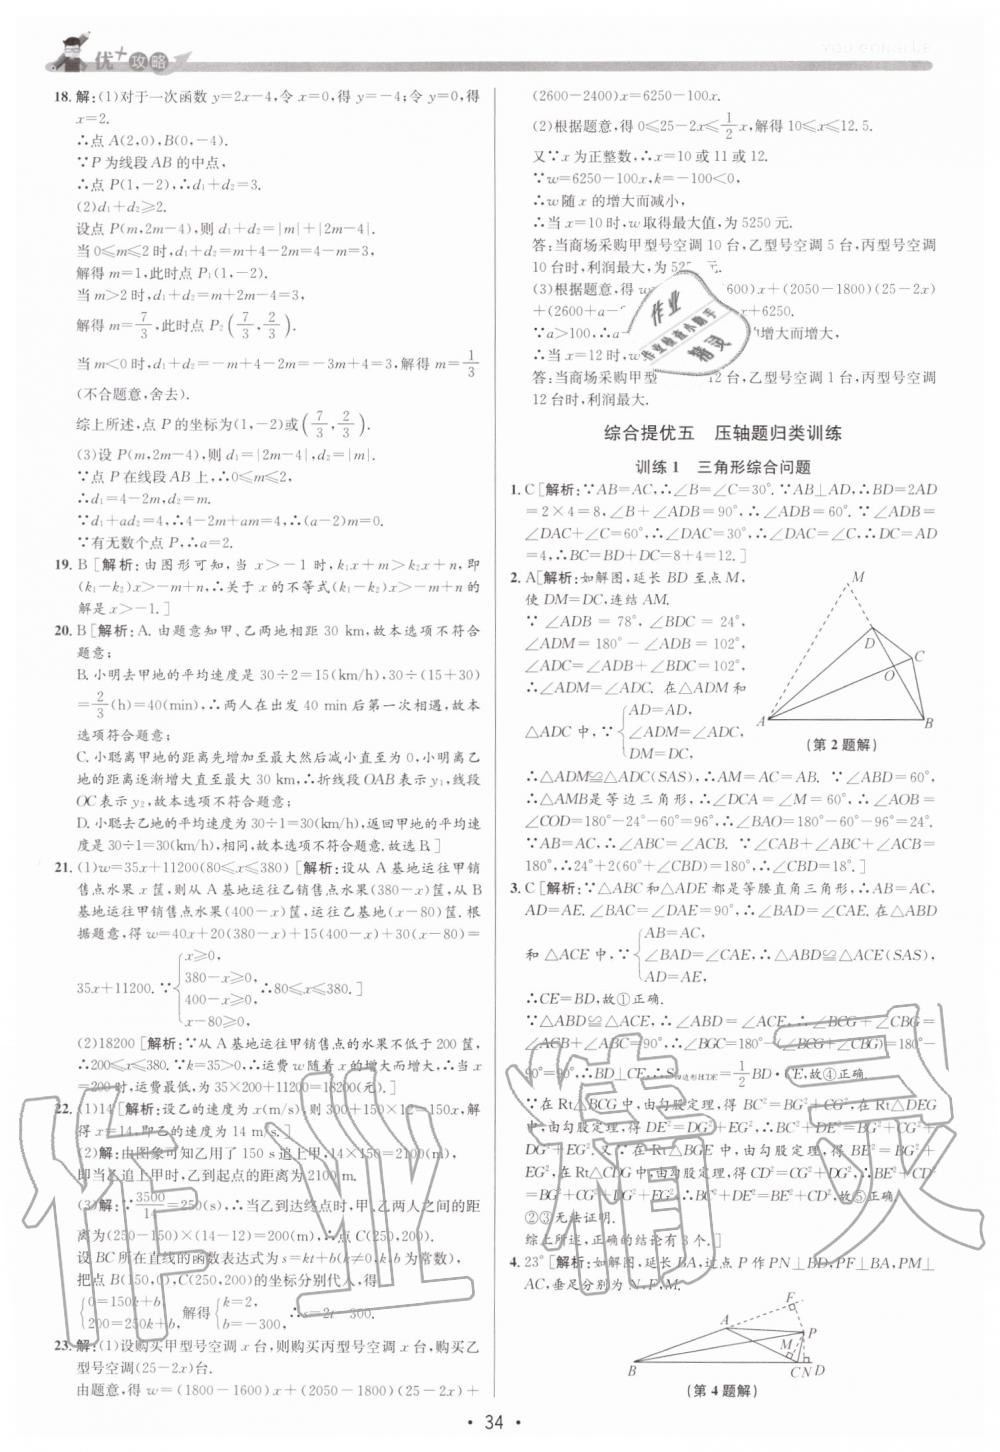 优+攻略
YOU GONGLUE
18. 解:(1)对于一次函数 y=2x-4,令 x=0,得 y=-4;令 y=0,得
x=2.
∴点 A(2,0),B(0,-4).
∵P 为线段 AB 的中点,
∴点 P(1,-2),∴d₁+d₂=3.
(2)d₁+d₂≥2.
设点 P(m,2m-4),则 d₁+d₂=|m|+|2m-4|.
当 0≤m≤2 时,d₁+d₂=m+4-2m=4-m=3,
解得 m=1,此时点 P₁(1,-2).
当 m>2 时,d₁+d₂=m+2m-4=3,
解得 m=7/3,此时点 P₂(7/3,2/3).
当 m<0 时,d₁+d₂=-m+4-2m=-3m+4=3,解得 m=1/3
(不合题意,舍去).
综上所述,点 P 的坐标为(1,-2)或(7/3,2/3).
(3)设 P(m,2m-4),则 d₁=|2m-4|,d₂=|m|.
∵点 P 在线段 AB 上,∴0≤m≤2,
∴d₁=4-2m,d₂=m.
∵d₁+ad₂=4,∴4-2m+am=4,∴(a-2)m=0.
∵有无数个点 P,∴a=2.
19. B [解析:由图形可知,当 x>-1 时,k₁x+m>k₂x+n,即
(k₁-k₂)x>-m+n,∴关于 x 的不等式(k₁-k₂)x>-m+n 的
解是 x>-1.]
20. B [解析:A. 由题意知甲、乙两地相距 30 km,故本选项不符合
题意;
B. 小明去甲地的平均速度是 30÷2=15(km/h),30÷(15+30)
=2/3(h)=40(min),∴两人在出发 40 min 后第一次相遇,故本
选项符合题意;
C. 小聪离甲地的距离先增加至最大然后减小直至为 0,小明离乙
地的距离逐渐增大直至最大 30 km,∴折线段 OAB 表示 y₁,线段
OC 表示 y₂,故本选项不符合题意;
D. 小聪去乙地的平均速度为 30÷1=30(km/h),返回甲地的平均速
度是 30÷1=30(km/h),相同,故本选项不符合题意.故选 B.]
21. (1)w=35x+11200(80≤x≤380) [解析:设从 A 基地运往甲销
售点水果 x 筐,则从 A 基地运往乙销售点水果(380-x)筐,从 B
基地运往甲销售点水果(400-x)筐,运往乙基地(x-80)筐. 根
据题意,得 w=40x+20(380-x)+15(400-x)+30(x-80)=
35x+11200. ∵{x≥0, 380-x≥0, 400-x≥0, x-80≥0, ∴80≤x≤380.]
(2)18200 [解析:∵从 A 基地运往甲销售点的水果不低于 200 筐,
∴200≤x≤380. ∵k=35>0,∴运费 w 随着 x 的增大而增大,∴当 x
=200 时,运费最低,为 35×200+11200=18200(元).]
22. (1)14 [解析:设乙的速度为 x(m/s),则 300+150×12=150x,解
得 x=14,即乙的速度为 14 m/s.]
(2)解:由图象可知乙用了 150 s 追上甲,14×150=2100(m),
即当乙追上甲时,乙到起点的距离为 2100 m.
(3)解:∵3500/14=250(s),∴当乙到达终点时,甲、乙两人之间的距
离为(250-150)×(14-12)=200(m),∴点 C(250,200).
设 BC 所在直线的函数表达式为 s=kt+b(k≠0,k,b 为常数),
把点 B(150,0),C(250,200)的坐标分别代入,得
{0=150k+b, 200=250k+b, 解得{k=2, b=-300, ∴s=2t-300.
23. 解:(1)设购买甲型号空调 x 台,则购买丙型号空调 x 台,购买乙
型号空调(25-2x)台.
由题意,得 w=(1800-1600)x+(2050-1800)(25-2x)+
(2600-2400)x=6250-100x.
(2)根据题意,得 0≤25-2x≤1/2x,解得 10≤x≤12.5.
又∵x 为正整数,∴x=10 或 11 或 12.
∵w=6250-100x,k=-100<0,
∴w 随 x 的增大而减小,
∴当 x=10 时,w 取得最大值,为 5250 元.
答:当商场采购甲型号空调 10 台,乙型号空调 5 台,丙型号空调
10 台时,利润最大,为 52 元.
(3)根据题意,得 600)x+(2050-1800)(25-2x)
+(2600+a- x+6250.
∵a>100,∴a- 的增大而增大,
∴当 x=12 时,w
答:当商场采购甲型 12 台,乙型号空调 1 台,丙型号空调
12 台时,利润最大.
综合提优五 压轴题归类训练
训练 1 三角形综合问题
1. C [解析:∵AB=AC,∴∠B=∠C=30°. ∵AB⊥AD,∴BD=2AD
=2×4=8,∠B+∠ADB=90°,∴∠ADB=60°. ∵∠ADB=
∠DAC+∠C=60°,∴∠DAC=30°,∴∠DAC=∠C,∴DC=AD
=4,∴BC=BD+DC=8+4=12.]
2. A[解析:如解图,延长 BD 至点 M,
使 DM=DC,连结 AM.
∵∠ADB=78°,∠BDC=24°,
∠ADM=180°-∠ADB=102°,
∠ADC=∠ADB+∠BDC=102°,
∴∠ADM=∠ADC. 在△ADM 和
△ADC 中,∵{AD=AD, ∠ADM=∠ADC, DM=DC,
M
D
C
O
A
B
(第 2 题解)
∴△ADM≌△ADC(SAS),∴AM=AC=AB. ∵∠ABD=60°,
∴△AMB是等边三角形,∴∠DCA=∠M=60°,∴∠AOB=
∠COD=180°-24°-60°=96°,∴∠BAO=180°-60°-96°=24°.
∵AB=AC,∴∠ABC=∠ACB. ∵∠CAB+∠ABC+∠ACB=
180°,∴24°+2(60°+∠CBD)=180°,∴∠CBD=18°.]
3. C [解析:∵△ABC 和△ADE 都是等腰直角三角形,∴AB=AC,
AD=AE. ∠BAC=∠DAE=90°,∴∠BAD=∠CAE. 在△ABD
和△ACE 中,∵{AB=AC, ∠BAD=∠CAE, AD=AE, ∴△ABD≌△ACE(SAS),
∴CE=BD,故①正确.
∵△ABD≌△ACE,∴∠ABD=∠ACE,∴∠BCG+∠CBG=
∠ACB+∠ABC=90°,∴∠BGC=180°-(∠BCG+∠CBG)=180°-
90°=90°,∴BD⊥CE,∴S四边形BCDE=1/2BD·CE,故④正确.
∵在 Rt△BCG 中,由勾股定理,得 BC²=BG²+CG²,在 Rt△DEG
中,由勾股定理,得 DE²=DG²+EG²,∴BC²+DE²=BG²+CG²+
DG²+EG². 又∵在 Rt△BGE 中,由勾股定理,得 BE²=BG²+
EG²,在 Rt△CDG 中,由勾股定理,得 CD²=CG²+DG²,∴BE²+CD²
=BG²+CG²+DG²+EG²,∴BC²+DE²=BE²+CD²,故⑤正确.
②③无法证明.
综上所述,正确的结论有 3 个.]
4. 23° [解析:如解图,延长 BA,过点 P 作 PN⊥BD,PF⊥BA,PM⊥
AC,垂足分别为 N,F,M.
F
A
P
M
B
C
N
D
(第 4 题解)
· 34 ·
作业
作业检查小助手
精灵
作业精灵